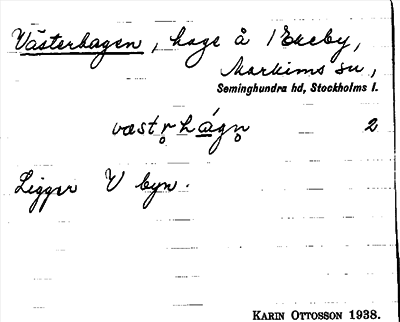 Västerhagen, hage å 1 Ekeby,
Markims sn,
Seminghundra hd, Stockholms l.
væst r̥ h ágn̥ 2
Ligger V byn.
KARIN OTTOSSON 1938.